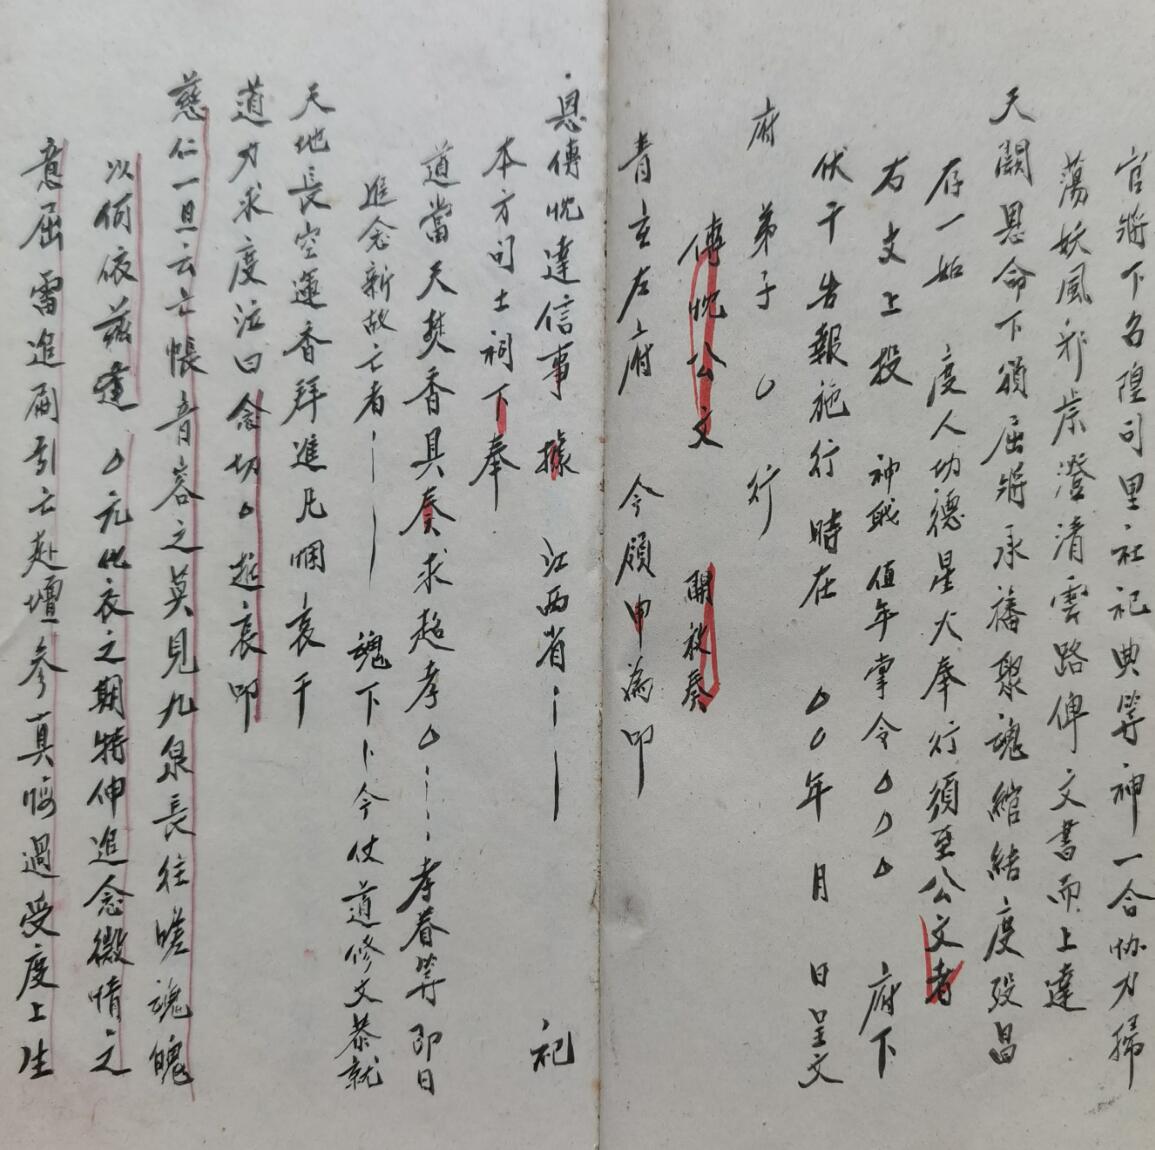 官將下名隍司里社祀典等神一合协力掃
蕩妖風邪祟澄清雲路俾文書而上達
天闕恩命下頒屈將承旛聚魂綰結度殁昌
存一如 度人功德星火奉行須至公文者
右文上投 神戝值年掌令○○○ 府下
伏干告報施行時在 ○○年 月 日呈文
府 弟子 ○ 行
傳悅公文 開秘奏
青玄左府 今領申為叩
恩傳悅達信事 據 江西省 祀
本方司土祠下奉
道當天焚香具奏求超孝○ 孝眷等即日
追念新故亡者 魂下 今仗道修文恭就
天地長空運香拜進凡悃哀干
道力求度泣曰念切○超哀叩
慈仁一旦云亡悵音容之莫見九泉長往嗟魂魄
以何依兹逢 ○元化衣之期特伸追念微情之
意屈雷追嗣引亡赴壇參真悔過受度上生